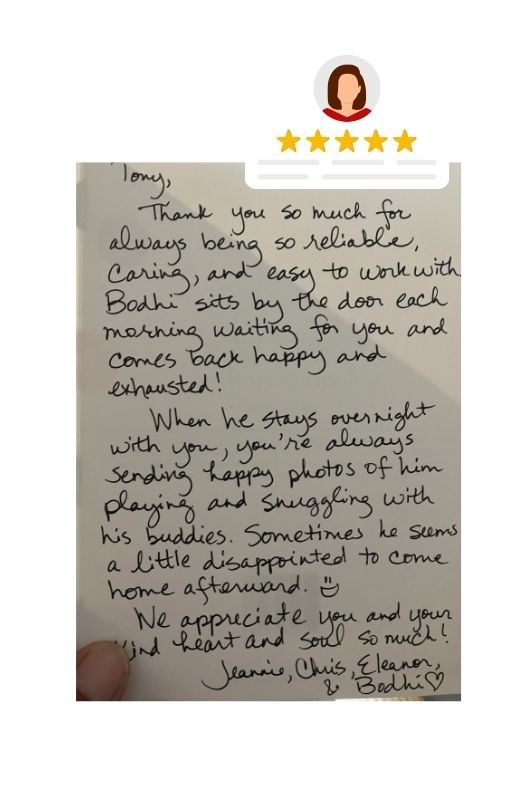 Tony,
Thank you so much for
always being so reliable,
caring, and easy to work with
Bodhi sits by the door each
morning waiting for you and
comes back happy and
exhausted!
When he stays overnight
with you, you're always
sending happy photos of him
playing and snuggling with
his buddies. Sometimes he seems
a little disappointed to come
home afterward.
We appreciate you and your
kind heart and soul so much!
Jeannie, Chris, Eleanor,
& Bodhi♡